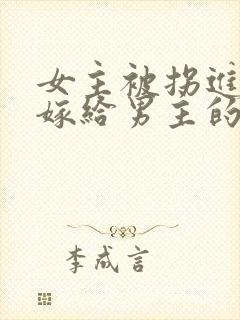 女主被拐進
嫁給男主的
李成言